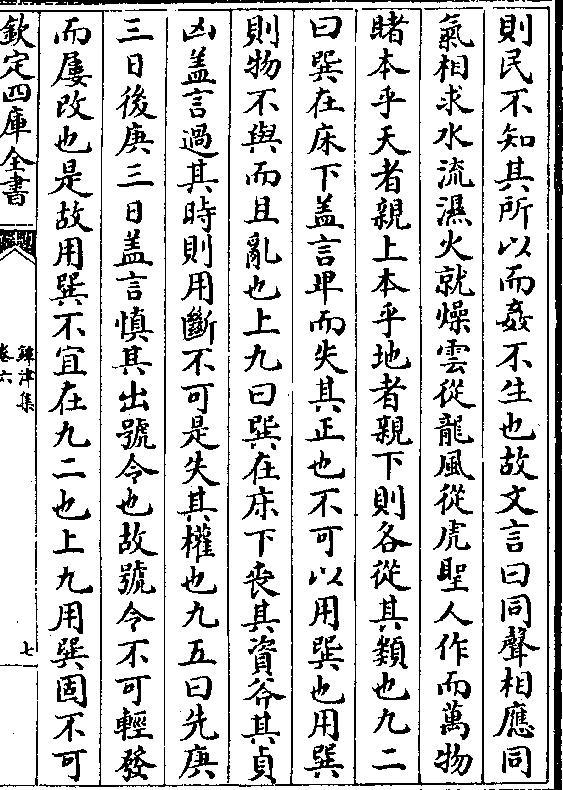 則民不知其所以而姦不生也故文言曰同聲相應同
氣相求水流濕火就燥雲從龍風從虎聖人作而萬物
睹本乎天者親上本乎地者親下則各從其類也九二
曰巽在床下盖言卑而失其正也不可以用巽也用巽
則物不與而且亂也上九曰巽在床下喪其資斧其貞
凶盖言過其時則用斷不可是失其權也九五曰先庚
三日後庚三日盖言慎其出號令也故號令不可輕發
而屢改也是故用巽不宜在九二也上九用巽固不可
欽定四庫全書
鐔津集
卷六
七